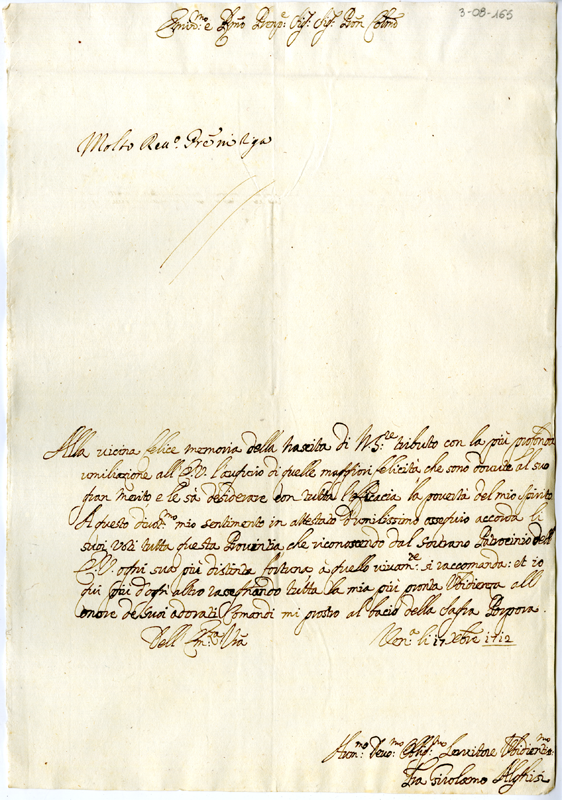 3-08-165
Em̃o e Rm̃o Prñpe Sig.r Sig.r Pron Colmo
Molto Reu.o Pre
Alla vicina felice memoria della Nascita di N.S.re tributo con la più profonda
umiliazione all'E.V. l'aufficio di quelle maggiori felicità che sono dovute al suo
gran Merito e le sà desiderare con tutta l'efficacia la povertà del mio spirito
A questo diuot.mo mio sentimento in attestato d'umilissimo ossequio accorda li
suoi Voti tutta questa Provincia che riconoscendo dal Sourano Patrocinio dell'
E.V. ogni sua più distinta fortuna à quello si raccomanda: et io
qui più d'ogn altro rassegnando tutta la mia più pronta Vbidienza all'
onore de suoi adorati Comandi mi prostro al bacio della Sagra Porpora.
Dell' Em.za Vrã
Ven.a li 17 Xbre 1712
Hum.mo Deuo.mo Obligmo Seruitore Vbidientis.mo
Fra Girolamo Alghisi